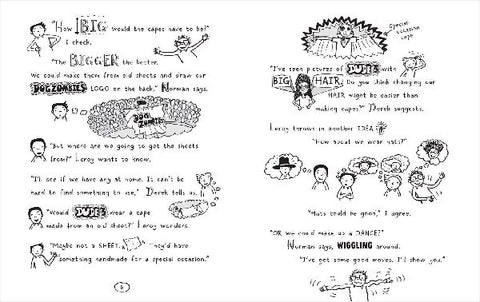 "How BIG would the capes have to be?"
I check.
"The BIGGER the better.
We could make them from old sheets and draw our
DOGZOMBIES LOGO on the back," Norman says.
DOG
ZOMBIES
"But where are we going to get the sheets
from?" Leroy wants to know.
"I'll see if we have any at home. It can't be
hard to find something to use," Derek tells us.
"Would DUDE3 wear a cape
made from an old sheet?" Leroy wonders.
"Maybe not a SHEET. They'd have
something handmade for a special occasion."
6
Special
occasion
cape
"I've seen pictures of DUDE3 with
BIG HAIR. Do you think changing our
HAIR might be easier than
making capes?" Derek suggests.
Leroy throws in another IDEA
"How about we wear hats?"
"Hats could be good," I agree.
"OR we could make up a DANCE?"
Norman says, WIGGLING around.
"I've got some good moves. I'll show you."